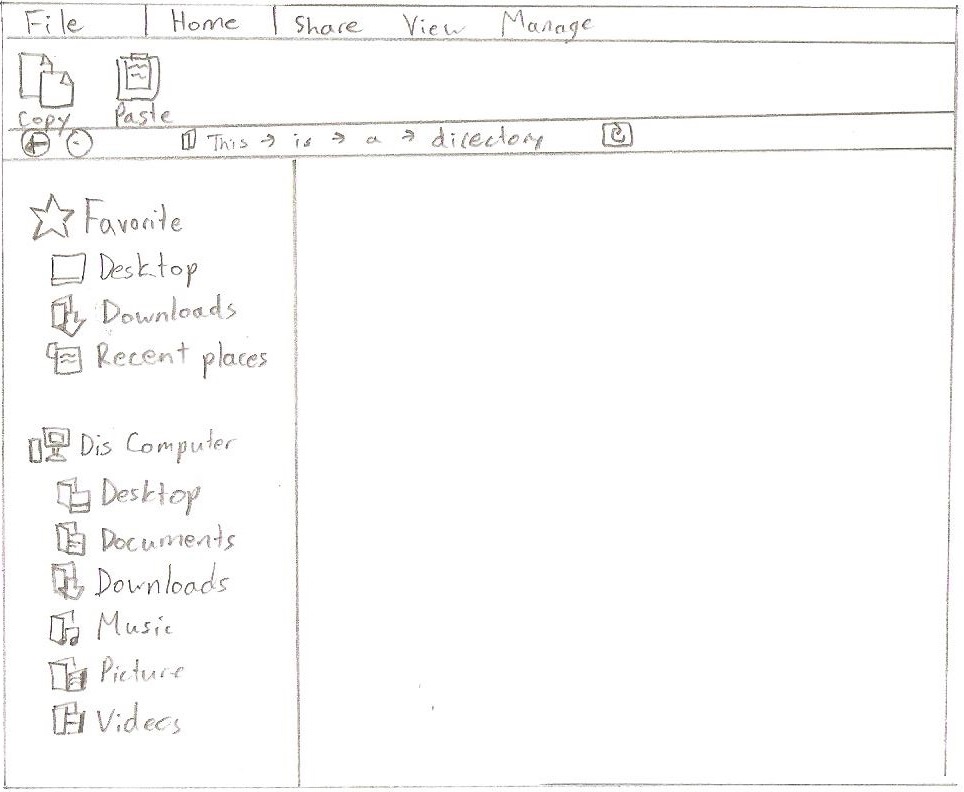 File Home Share View Manage
Copy Paste
This → is → a → directory
Favorite
Desktop
Downloads
Recent places
Dis Computer
Desktop
Documents
Downloads
Music
Picture
Videos